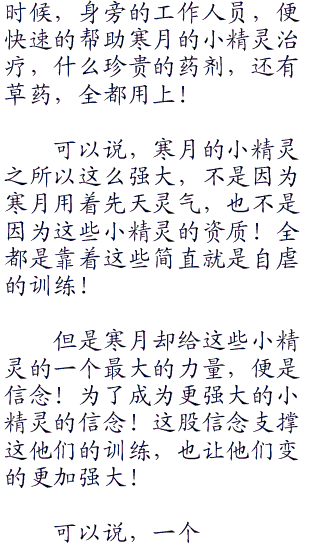 时候，身旁的工作人员，便
快速的帮助寒月的小精灵治
疗，什么珍贵的药剂，还有
草药，全都用上！
可以说，寒月的小精灵
之所以这么强大，不是因为
寒月用着先天灵气，也不是
因为这些小精灵的资质！全
都是靠着这些简直就是自虐
的训练！
但是寒月却给这些小精
灵的一个最大的力量，便是
信念！为了成为更强大的小
精灵的信念！这股信念支撑
这他们的训练，也让他们变
的更加强大！
可以说，一个